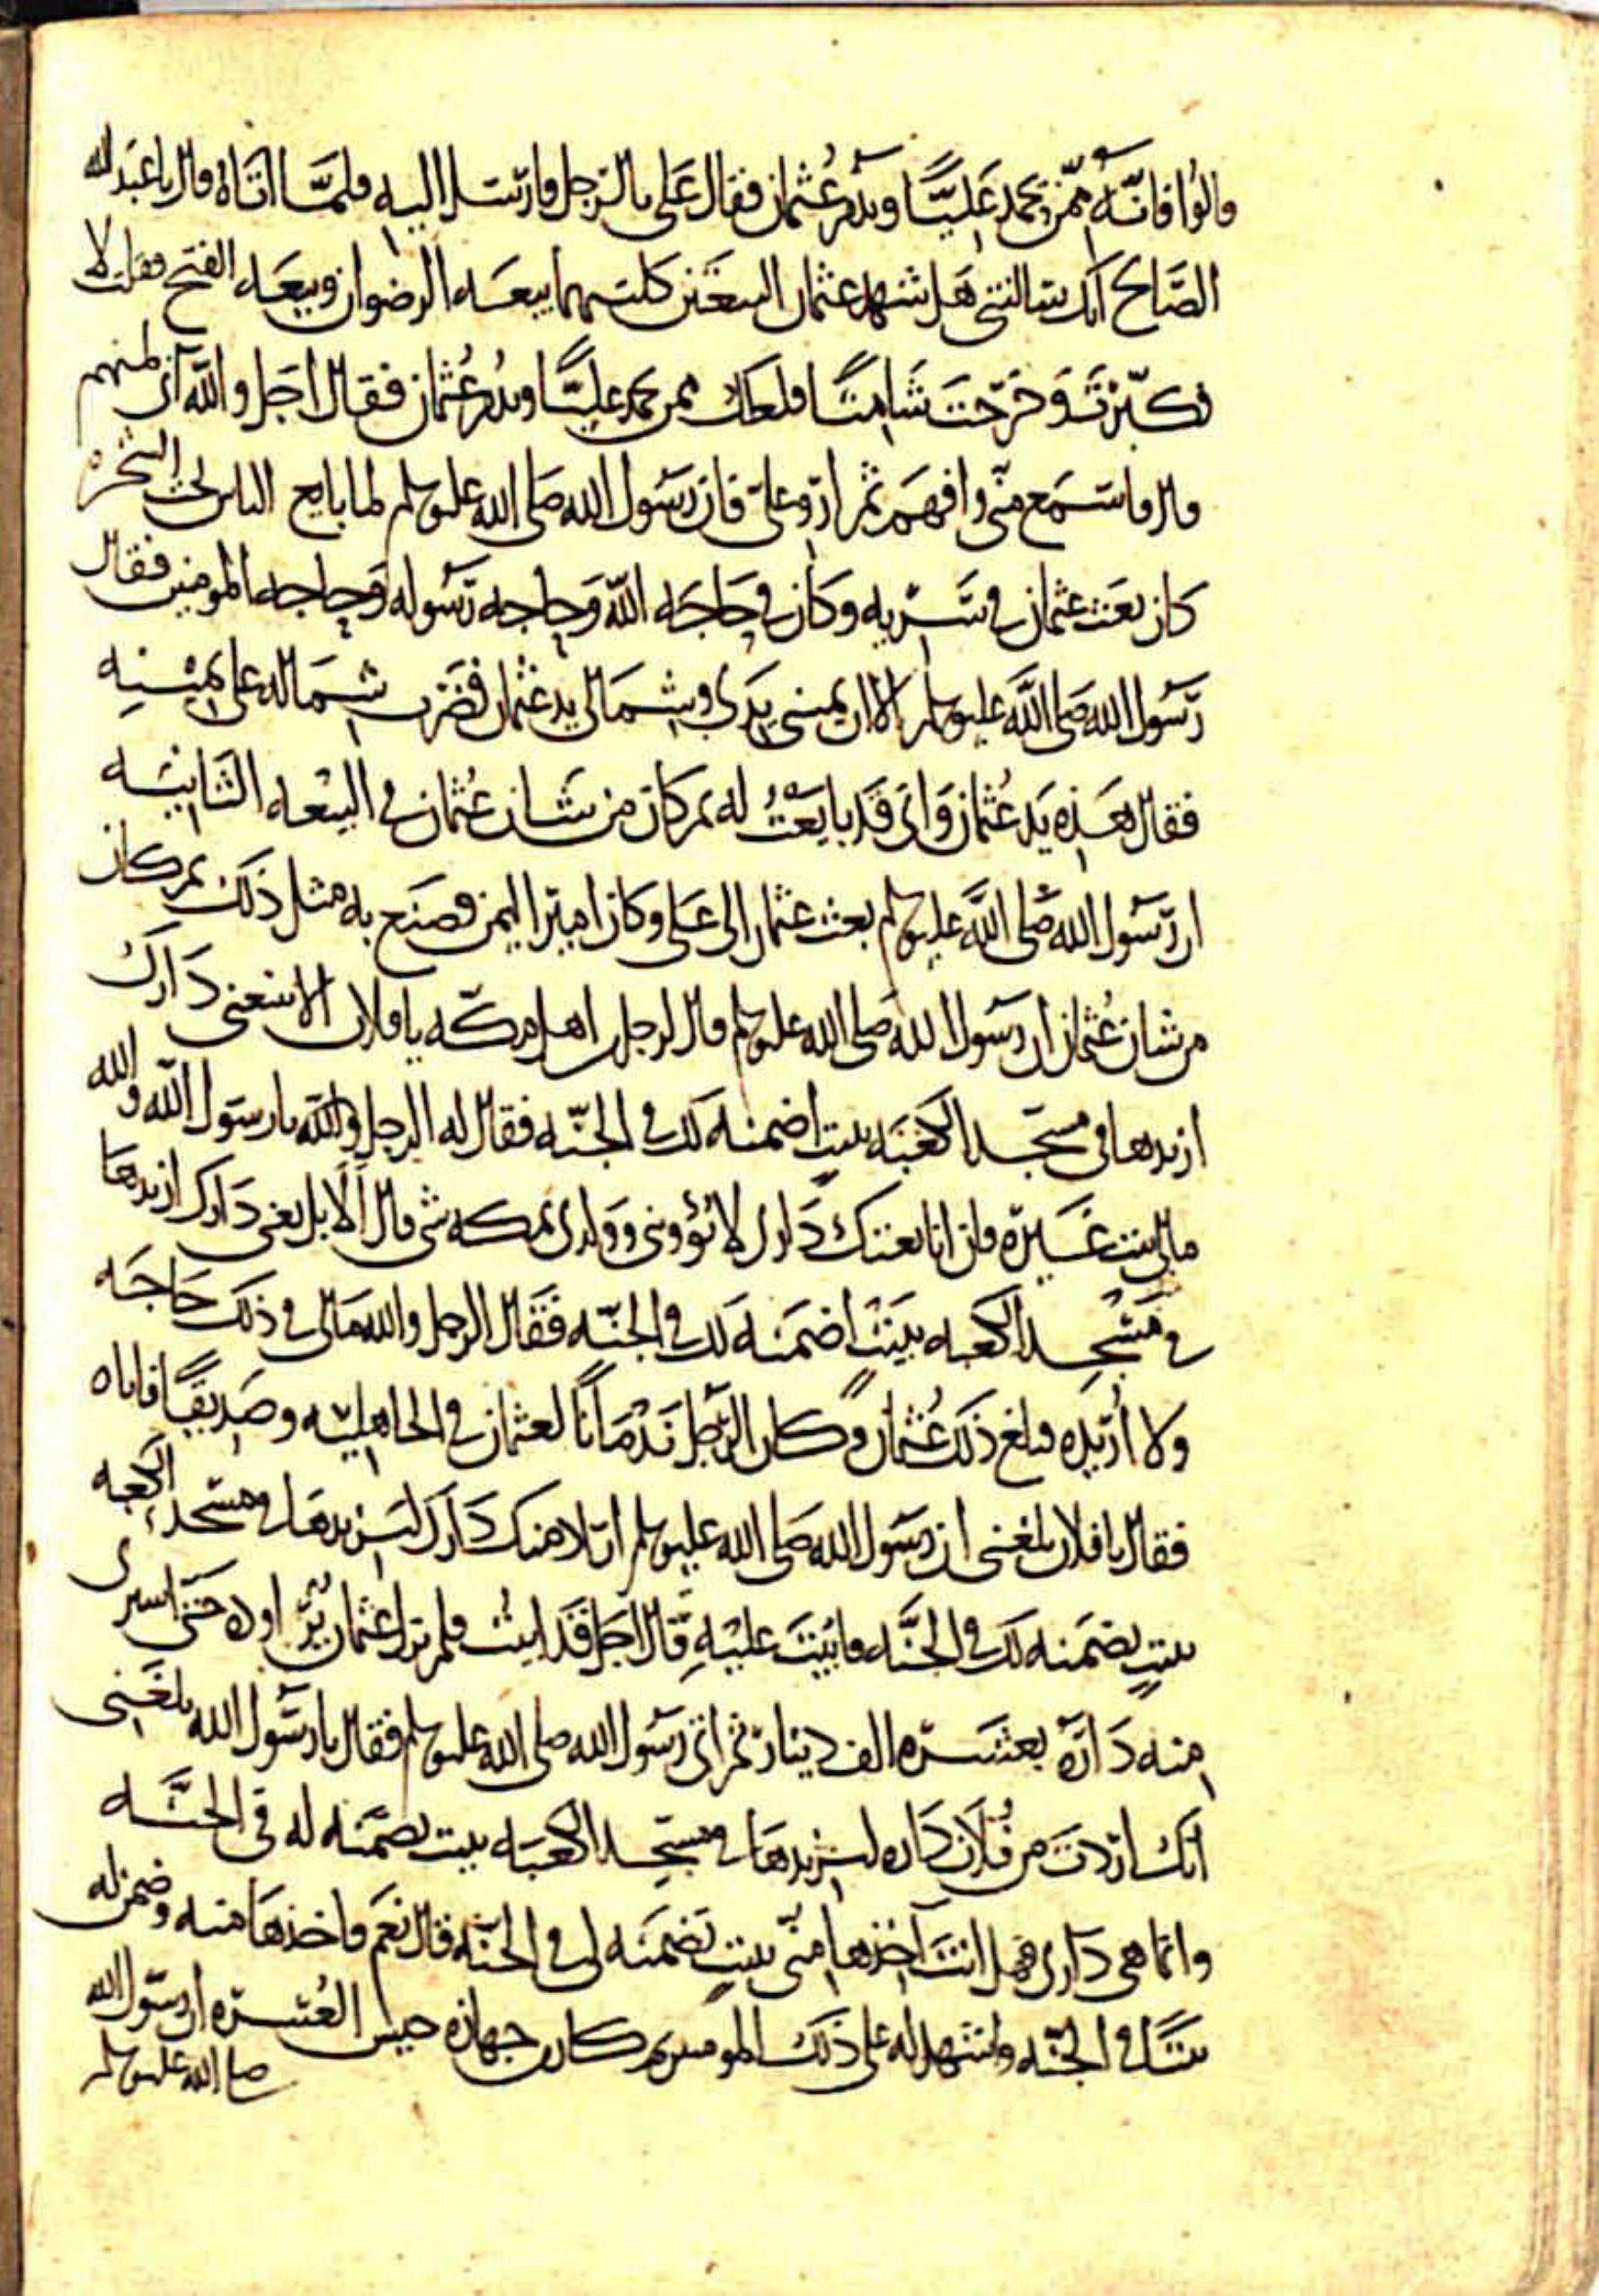 قالوا فانه ممن يحمد عليا ويذم عثمان فقال علي بالرجل فارسل اليه فلما اتاه قال يا عبد الله
الصالح انك سالتني هل شهد عثمان البيعتين كلتيهما بيعه الرضوان وبيعه الفتح فقلت لا
فكبرت وخرجت شامتا فلعلك ممن يحمد عليا ويذم عثمان فقال اجل والله اني لمنهم
قال فاستمع مني وافهم ثم ارو علي فان رسول الله صلى الله عليه وسلم لما بايع الناس تحت الشجره
كان بعث عثمان في سريه وكان في حاجه الله وحاجه رسوله وحاجه المومنين فقال
رسول الله صلى الله عليه وسلم الا ان يميني يدي وشمالي يد عثمان فضرب شماله على يمينه
فقال هذه يد عثمان واني قد بايعت له ثم كان من شان عثمان في البيعه الثانيه
ان رسول الله صلى الله عليه وسلم بعث عثمان الى علي وكان امير اليمن فصنع به مثل ذلك ثم كان
من شان عثمان ان رسول الله صلى الله عليه وسلم قال لرجل من اهل مكه يا فلان الا تبيعني دارك
ازيدها في مسجد الكعبه ببيت اضمنه لك في الجنه فقال له الرجل والله يا رسول الله والله
مالي بيت غيره فان انا بعتك داري لا تؤويني وولدي بمكه شي قال الا بل بعني دارك ازيدها
في مسجد الكعبه ببيت اضمنه لك في الجنه فقال الرجل والله مالي في ذلك حاجه
ولا اريده فبلغ ذلك عثمان وكان الرجل ندمانا لعثمان في الجاهليه وصديقا فاتاه
فقال يا فلان بلغني ان رسول الله صلى الله عليه وسلم اراد منك دارك ليزيدها في مسجد الكعبه
ببيت يضمنه لك في الجنه فابيت عليه قال اجل قد ابيت فلم يزل عثمان حتى اشترى
منه داره بعشره الف دينار ثم اتى رسول الله صلى الله عليه وسلم فقال يا رسول الله بلغني
انك اردت من فلان داره لتزيدها في مسجد الكعبه ببيت تضمنه له في الجنه
وانما هي داري فهل انت اخذها مني ببيت تضمنه لي في الجنه قال نعم فاخذها منه وضمن له
بيتا في الجنه واشهد له على ذلك المومنين ثم كان جهازه جيش العسره ان رسول الله
صلى الله عليه وسلم